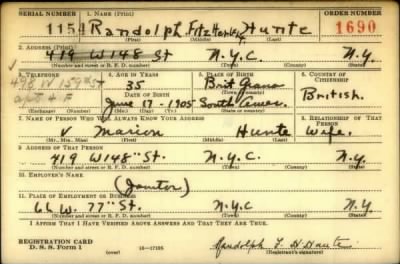 SERIAL NUMBER 1. NAME (Print) ORDER NUMBER
1154 Randolph FitzHenley Hunte 1690
(First) (Middle) (Last)
2. ADDRESS (Print)
419 W 148 St N.Y.C. N.Y.
(Number and street or R. F. D. number) (Town) (County) (State)
3. TELEPHONE 4. AGE IN YEARS 5. PLACE OF BIRTH 6. COUNTRY OF CITIZENSHIP
498 W 159th St 35 Brit Guana
apt 4 F DATE OF BIRTH
June 17 - 1905 South Amer. British.
(Exchange) (Number) (Mo.) (Day) (Yr.) (State or country)
7. NAME OF PERSON WHO WILL ALWAYS KNOW YOUR ADDRESS 8. RELATIONSHIP OF THAT PERSON
V. Marion Hunte Wife.
(Mr., Mrs., Miss) (First) (Middle) (Last)
9. ADDRESS OF THAT PERSON
419 W 148" St. N.Y.C. N.Y.
(Number and street or R. F. D. number) (Town) (County) (State)
10. EMPLOYER'S NAME
(Janitor)
11. PLACE OF EMPLOYMENT OR BUSINESS
66 W. 77" St. N.Y.C. N.Y.
(Number and street or R. F. D. number) (Town) (County) (State)
I AFFIRM THAT I HAVE VERIFIED ABOVE ANSWERS AND THAT THEY ARE TRUE.
REGISTRATION CARD
D. S. S. Form 1 (over) 16—17105 Randolph F. H Hunte
(Registrant's signature)